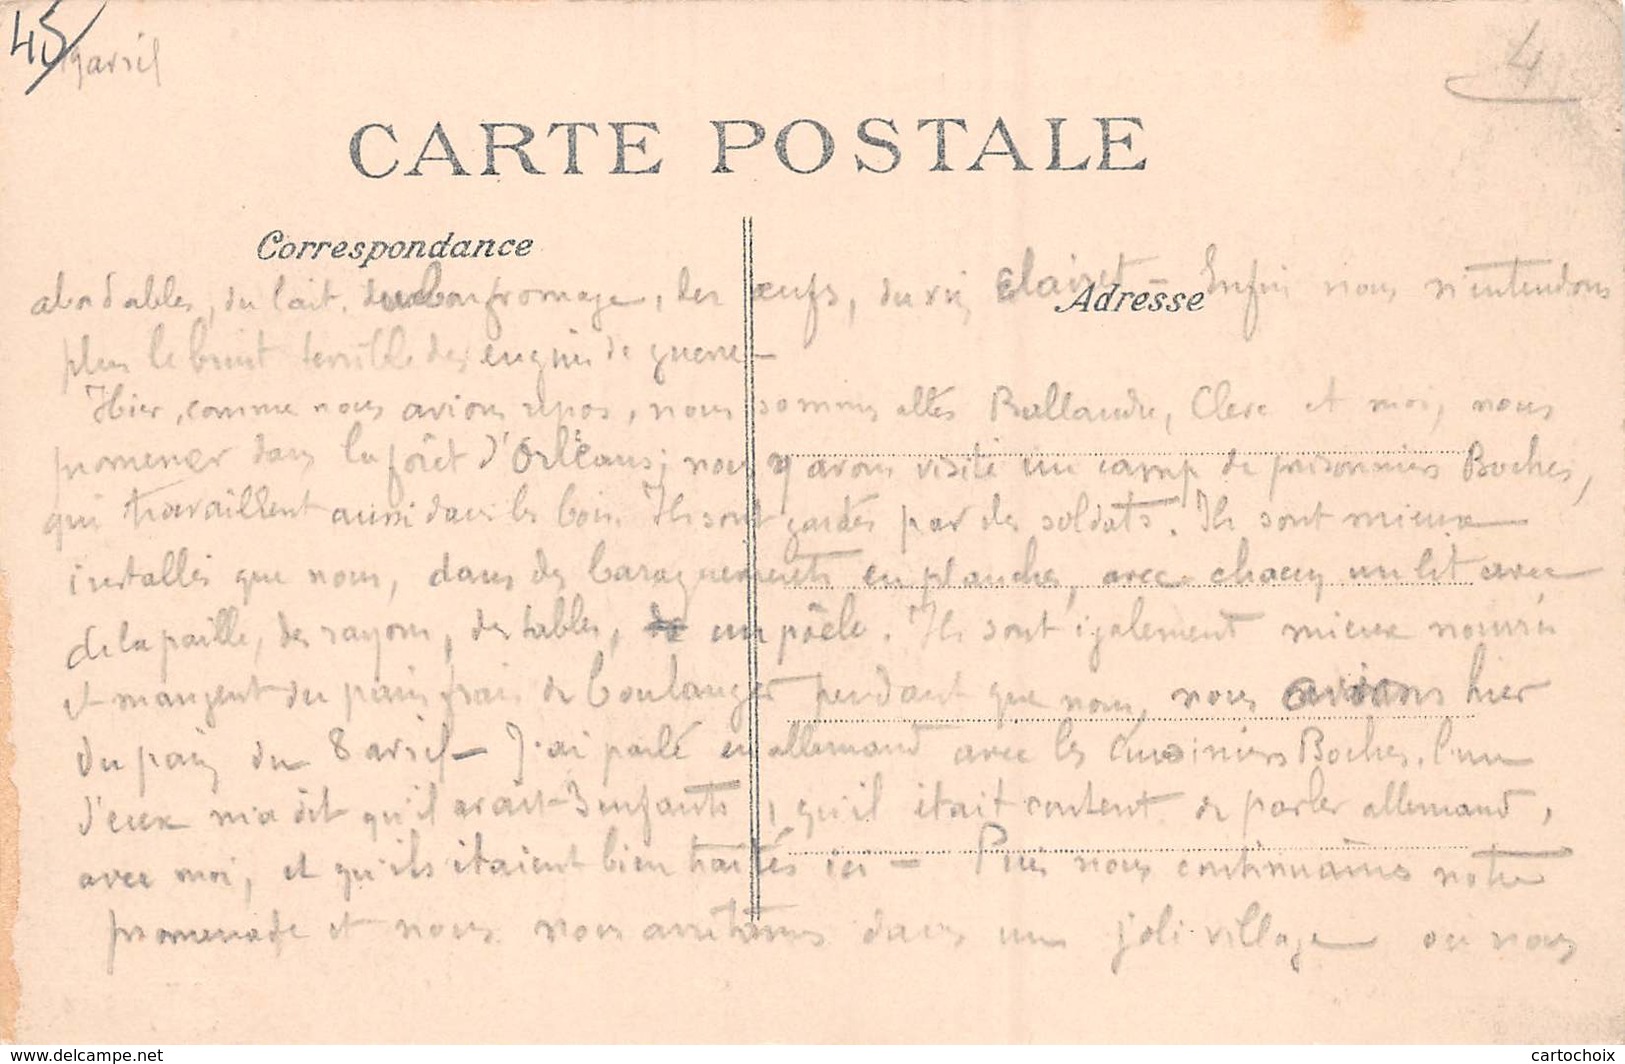 45
19 avril
4
CARTE POSTALE
Correspondance
Adresse
abordables, du lait, du bon fromage, des œufs, du vin clairet - Enfin nous n'entendons
plus le bruit terrible des engins de guerre -
Hier, comme nous avions repos, nous sommes allés Ballandre, Clerc et moi, nous
promener dans la forêt d'Orléans; nous y avons visité un camp de prisonniers Boches,
qui travaillent aussi dans les bois. Ils sont gardés par des soldats. Ils sont mieux
installés que nous, dans des baraquements en planches, avec chacun un lit avec
de la paille, des rayons, des tables, un poêle. Ils sont également mieux nourris
et mangent du pain frais de boulanger pendant que nous, nous avions hier
du pain du 8 avril - J'ai parlé en allemand avec les cuisiniers Boches. L'un
d'eux m'a dit qu'il avait 3 enfants, qu'il était content de parler allemand,
avec moi, et qu'ils étaient bien traités ici - Puis nous continuâmes notre
promenade et nous nous arrêtâmes dans un joli village où nous
www.delcampe.net
cartochoix